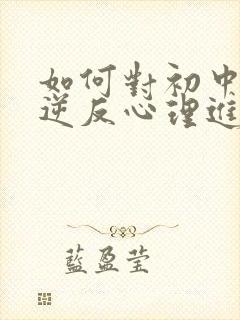 如何對初中
逆反心理進
藍盈莹